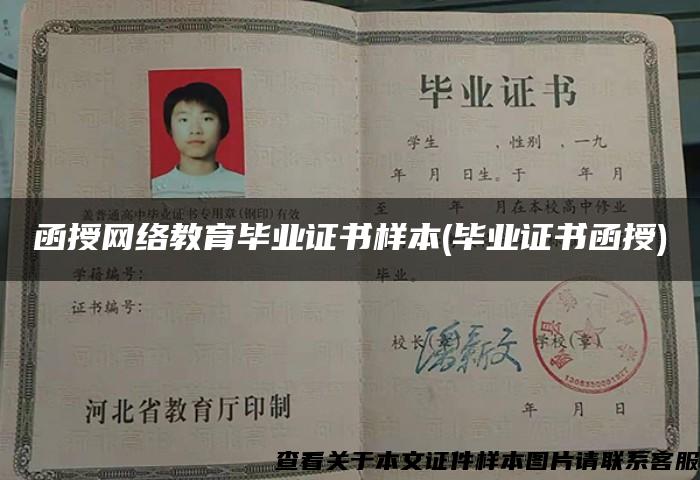 毕业证书
学生 ,性别 ,一九
年 月 日生。于 年 月
盖普通高中毕业证书专用章(钢印)有效
至 年 月在本校高中修业
函授网络教育毕业证书样本(毕业证书函授)
学籍编号:
毕业。
证书编号:
校长(章) 潘新文
学校(章)
河北省教育厅印制
年 月 日
查看关于本文证件样本图片请联系客服